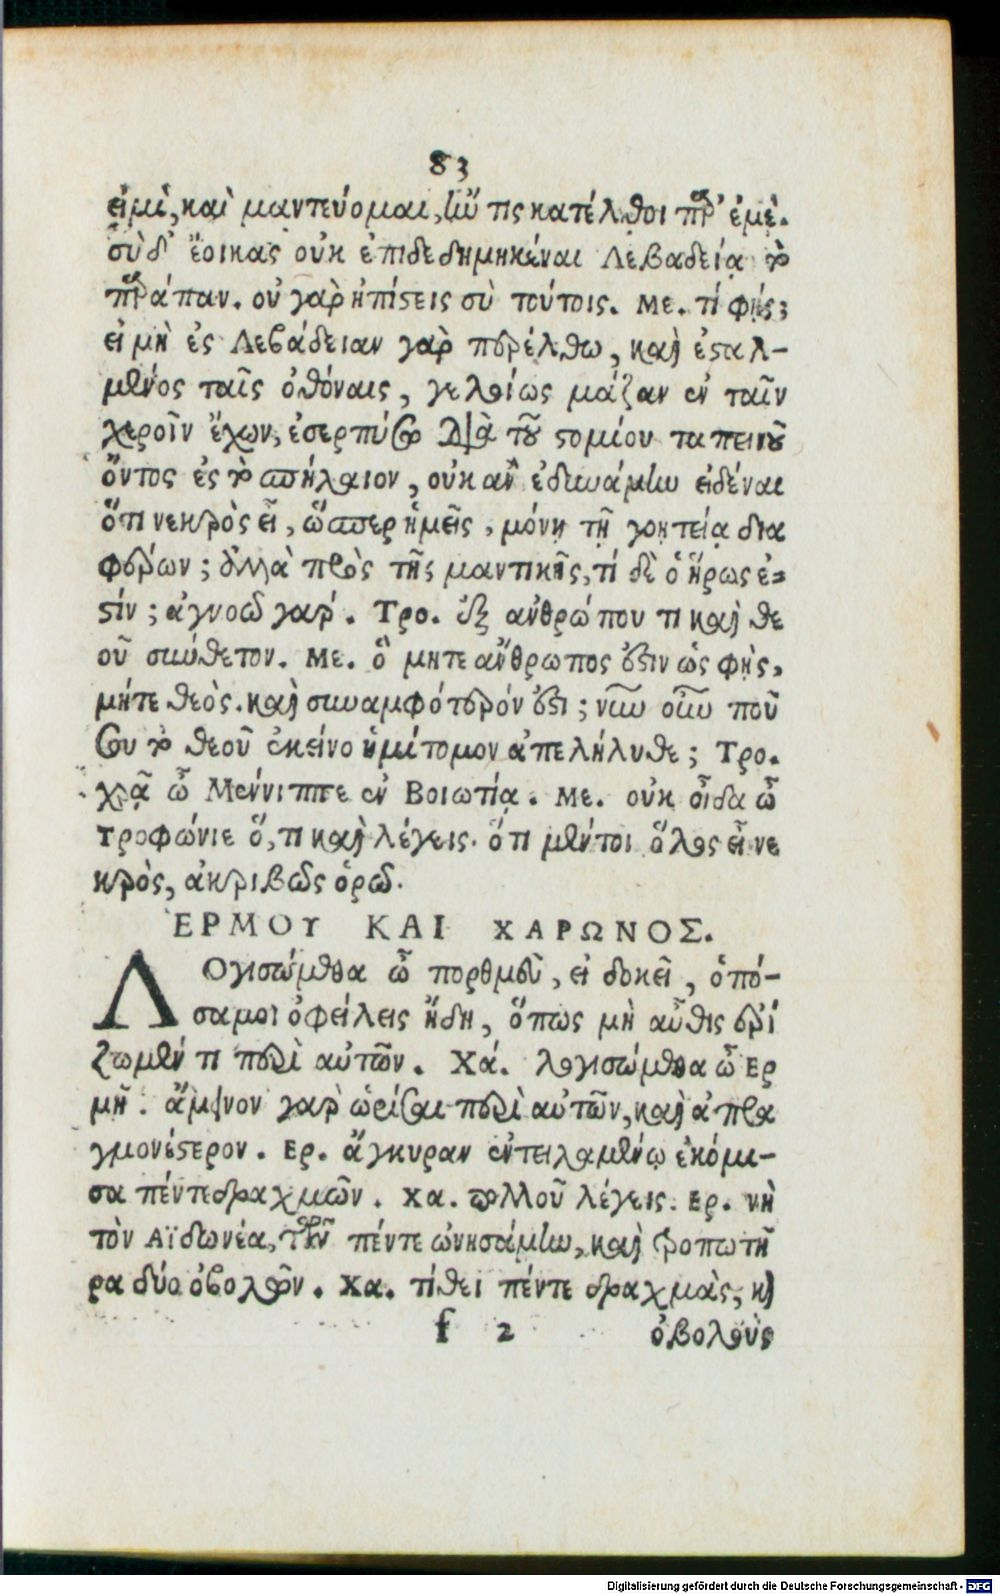 83
εἰμὶ, καὶ μαντεύομαι, ἢν τις κατέλθοι παρ' ἐμέ.
σὺ δ' ἔοικας οὐκ ἐπιδεδημηκέναι Λεβαδείᾳ τὸ
παράπαν. οὐ γὰρ ἠπίστεις σὺ τούτοις. Με. τί φῄς;
εἰ μὴ ἐς Λεβάδειαν γὰρ παρέλθω, καὶ ἐσταλ-
μένος ταῖς ὀθόναις, γελοίως μάζαν ἐν ταῖν
χεροῖν ἔχων, ἐσερπύσω διὰ τοῦ στομίου ταπεινοῦ
ὄντος ἐς τὸ σπήλαιον, οὐκ ἂν ἐδυνάμην εἰδέναι
ὅτι νεκρὸς εἶ, ὥσπερ ἡμεῖς, μόνῃ τῇ γοητείᾳ δια
φέρων; ἀλλὰ πρὸς τῆς μαντικῆς, τί δὲ ὁ ἥρως ἐ-
στίν; ἀγνοῶ γάρ. Τρο. ἐξ ἀνθρώπου τι καὶ θε
οῦ σύνθετον. Με. ὃ μήτε ἄνθρωπος ἐστιν ὡς φῂς,
μήτε θεὸς. καὶ συναμφότερόν ἐστι; νῦν οὖν ποῦ
σου τὸ θεοῦ ἐκεῖνο ἡμίτομον ἀπελήλυθε; Τρο.
χρᾷ ὦ Μένιππε ἐν Βοιωτίᾳ. Με. οὐκ οἶδα ὦ
Τροφώνιε ὅ, τι καὶ λέγεις. ὅτι μέντοι ὅλος εἶ νε
κρὸς, ἀκριβῶς ὁρῶ.
ἙΡΜΟΥ ΚΑΙ ΧΑΡΩΝΟΣ.
ΛΟγισώμεθα ὦ πορθμεῦ, εἰ δοκεῖ, ὁπό-
σα μοι ὀφείλεις ἤδη, ὅπως μὴ αὖθις ἐρί
ζωμέν τι περὶ αὐτῶν. Χά. λογισώμεθα ὦ Ερ
μῆ. ἄμεινον γὰρ ὡρίσαι περὶ αὐτῶν, καὶ ἀπρα
γμονέστερον. Ερ. ἄγκυραν ἐντειλαμένῳ ἐκόμι-
σα πέντε δραχμῶν. Χα. πολλοῦ λέγεις. Ερ. νὴ
τὸν Αϊδωνέα, τῶν πέντε ὠνησάμην, καὶ τροπωτῆ
ρα δύο ὀβολῶν. Χα. τίθει πέντε δραχμὰς, καὶ
f 2 ὀβολοὺς
Digitalisierung gefördert durch die Deutsche Forschungsgemeinschaft - DFG